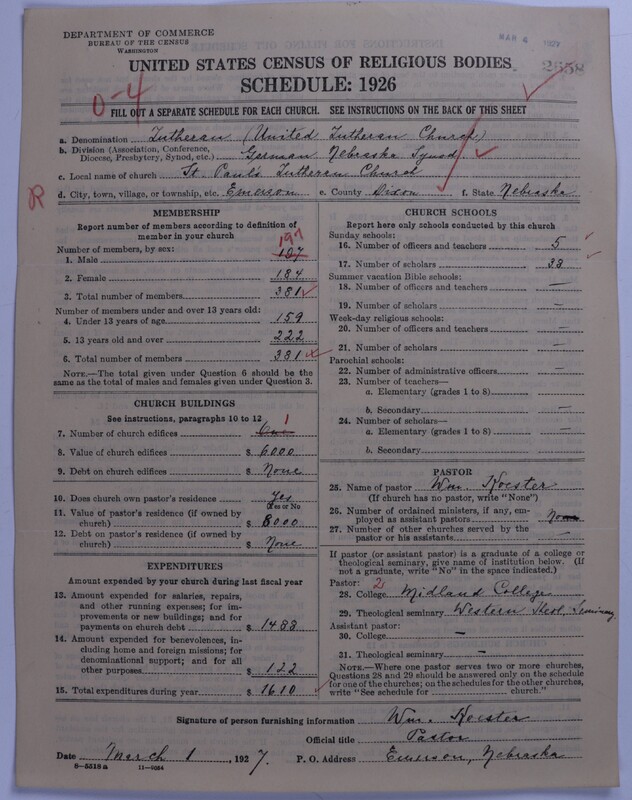 DEPARTMENT OF COMMERCE
BUREAU OF THE CENSUS
WASHINGTON
MAR 4 1927
2558
UNITED STATES CENSUS OF RELIGIOUS BODIES
SCHEDULE: 1926
0-4
FILL OUT A SEPARATE SCHEDULE FOR EACH CHURCH. SEE INSTRUCTIONS ON THE BACK OF THIS SHEET
a. Denomination Lutheran (United Lutheran Church)
b. Division (Association, Conference, Diocese, Presbytery, Synod, etc.) German Nebraska Synod
c. Local name of church St. Paul's Lutheran Church
R
d. City, town, village, or township, etc. Emerson e. County Dixon f. State Nebraska
MEMBERSHIP
Report number of members according to definition of
member in your church
Number of members, by sex:
197
1. Male 197
2. Female 184
3. Total number of members 381
Number of members under and over 13 years old:
4. Under 13 years of age 159
5. 13 years old and over 222
6. Total number of members 381
NOTE.—The total given under Question 6 should be
same as the total of males and females given under Question 3.
CHURCH BUILDINGS
See instructions, paragraphs 10 to 12
7. Number of church edifices One 1
8. Value of church edifices $ 6000
9. Debt on church edifices $ None
10. Does church own pastor's residence Yes
Yes or No
11. Value of pastor's residence (if owned by
church) $ 8000
12. Debt on pastor's residence (if owned by
church) $ None
EXPENDITURES
Amount expended by your church during last fiscal year
13. Amount expended for salaries, repairs,
and other running expenses; for im-
provements or new buildings; and for
payments on church debt $ 1488
14. Amount expended for benevolences, in-
cluding home and foreign missions; for
denominational support; and for all
other purposes $ 122
15. Total expenditures during year $ 1610
CHURCH SCHOOLS
Report here only schools conducted by this church
Sunday schools:
16. Number of officers and teachers 5
17. Number of scholars 33
Summer vacation Bible schools:
18. Number of officers and teachers —
19. Number of scholars —
Week-day religious schools:
20. Number of officers and teachers —
21. Number of scholars —
Parochial schools:
22. Number of administrative officers —
23. Number of teachers—
a. Elementary (grades 1 to 8) —
b. Secondary —
24. Number of scholars—
a. Elementary (grades 1 to 8) —
b. Secondary —
PASTOR
25. Name of pastor Wm. Koester
(If church has no pastor, write "None")
26. Number of ordained ministers, if any, em-
ployed as assistant pastors None
27. Number of other churches served by the
pastor or his assistants
If pastor (or assistant pastor) is a graduate of a college or
theological seminary, give name of institution below. (If
not a graduate, write "No" in the space indicated.)
Pastor: 2
28. College Midland College
29. Theological seminary Western Theol. Seminary
Assistant pastor:
30. College —
31. Theological seminary —
NOTE.—Where one pastor serves two or more churches,
Questions 28 and 29 should be answered only on the schedule
for one of the churches; on the schedules for the other churches,
write "See schedule for church."
Signature of person furnishing information Wm. Koester
Official title Pastor
Date March 1, 1927. P. O. Address Emerson, Nebraska
8-5518 a 11-9684